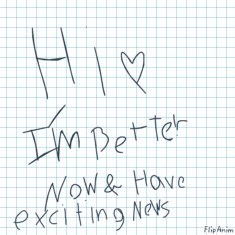 Hi ♡
I'm Better
Now & Have
exciting News
FlipAnim